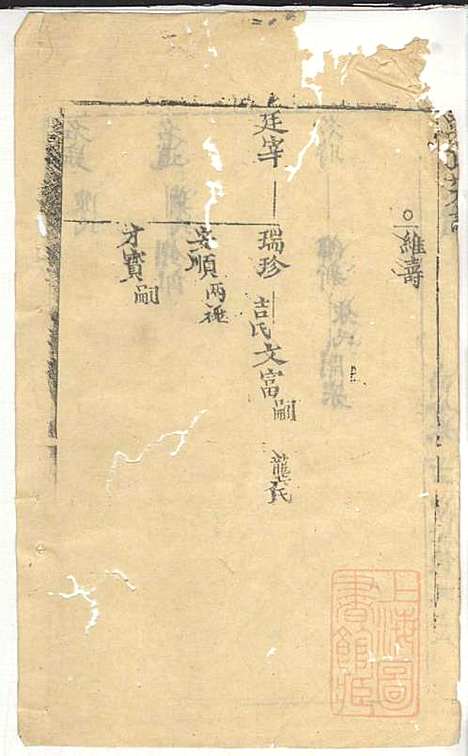 維壽
廷宰
瑞珍 吉氏 文富嗣 龔氏
安順 兩祧
才寶嗣
上海圖書館藏